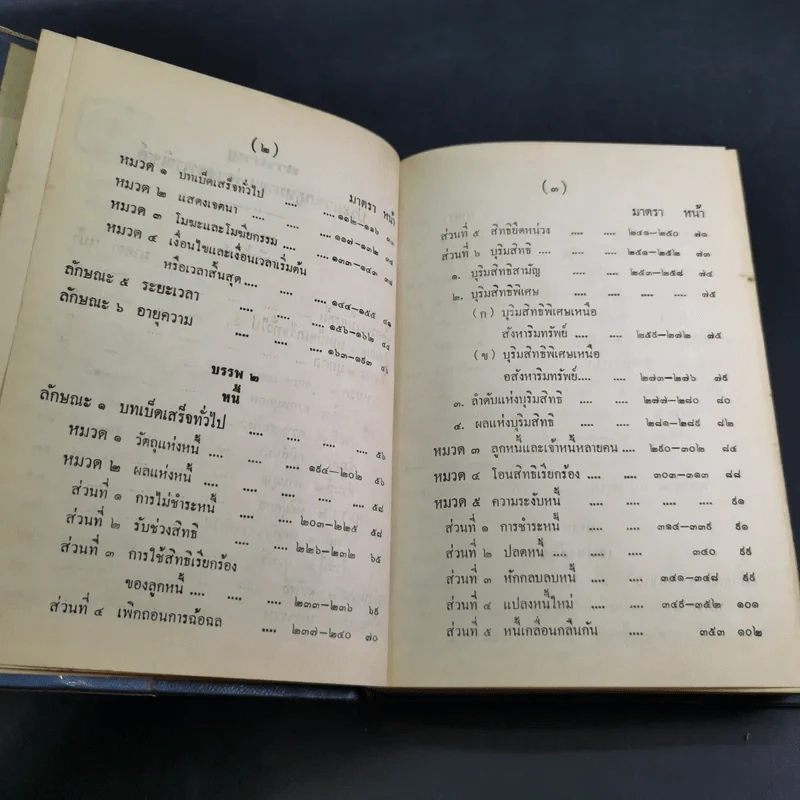 (๒)
มาตรา หน้า
หมวด ๑ บทเบ็ดเสร็จทั่วไป .... .... ๑๑๒—๑๑๖
หมวด ๒ แสดงเจตนา .... .... .... ๑๑๗—๑๓๒
หมวด ๓ โมฆะและโมฆียกรรม .... .... ๑๓๓—๑๔๓
หมวด ๔ เงื่อนไขและเงื่อนเวลาเริ่มต้น
หรือเวลาสิ้นสุด .... .... .... ๑๔๔—๑๕๕ ๔๑
ลักษณะ ๕ ระยะเวลา .... .... .... ๑๕๖—๑๖๒ ๔๔
ลักษณะ ๖ อายุความ .... .... .... ๑๖๓—๑๙๓ ๔๖
บรรพ ๒
หนี้
ลักษณะ ๑ บทเบ็ดเสร็จทั่วไป .... .... .... .... ๕๖
หมวด ๑ วัตถุแห่งหนี้ .... .... .... ๑๙๔—๒๐๒ ๕๖
หมวด ๒ ผลแห่งหนี้ .... .... .... .... ๕๘
ส่วนที่ ๑ การไม่ชำระหนี้ .... .... ๒๐๓—๒๒๕ ๕๘
ส่วนที่ ๒ รับช่วงสิทธิ .... .... ๒๒๖—๒๓๒ ๖๕
ส่วนที่ ๓ การใช้สิทธิเรียกร้อง
ของลูกหนี้ .... .... .... ๒๓๓—๒๓๖ ๖๙
ส่วนที่ ๔ เพิกถอนการฉ้อฉล
.... ๒๓๗—๒๔๐ ๗๐
(๓)
มาตรา หน้า
ส่วนที่ ๕ สิทธิยึดหน่วง .... .... ๒๔๑—๒๕๐ ๗๑
ส่วนที่ ๖ บุริมสิทธิ .... .... ๒๕๑—๒๕๒ ๗๓
๑. บุริมสิทธิสามัญ .... .... ๒๕๓—๒๕๘ ๗๔
๒. บุริมสิทธิพิเศษ .... .... .... ๗๕
(ก) บุริมสิทธิพิเศษเหนือ
สังหาริมทรัพย์ .... .... ๒๕๙—๒๗๒ ๗๕
(ข) บุริมสิทธิพิเศษเหนือ
อสังหาริมทรัพย์.... .... ๒๗๓—๒๗๖ ๗๙
๓. ลำดับแห่งบุริมสิทธิ .... ๒๗๗—๒๘๐ ๘๐
๔. ผลแห่งบุริมสิทธิ .... .... ๒๘๑—๒๘๙ ๘๒
หมวด ๓ ลูกหนี้และเจ้าหนี้หลายคน .... ๒๙๐—๓๐๒ ๘๔
หมวด ๔ โอนสิทธิเรียกร้อง .... .... ๓๐๓—๓๑๓ ๘๘
หมวด ๕ ความระงับหนี้ .... .... .... ๙๑
ส่วนที่ ๑ การชำระหนี้ .... .... ๓๑๔—๓๓๙ ๙๑
ส่วนที่ ๒ ปลดหนี้ .... .... .... ๓๔๐ ๙๙
ส่วนที่ ๓ หักกลบลบหนี้ .... .... ๓๔๑—๓๔๘ ๙๙
ส่วนที่ ๔ แปลงหนี้ใหม่ .... .... ๓๔๙—๓๕๒ ๑๐๑
ส่วนที่ ๕ หนี้เกลื่อนกลืนกัน .... ๓๕๓ ๑๐๒